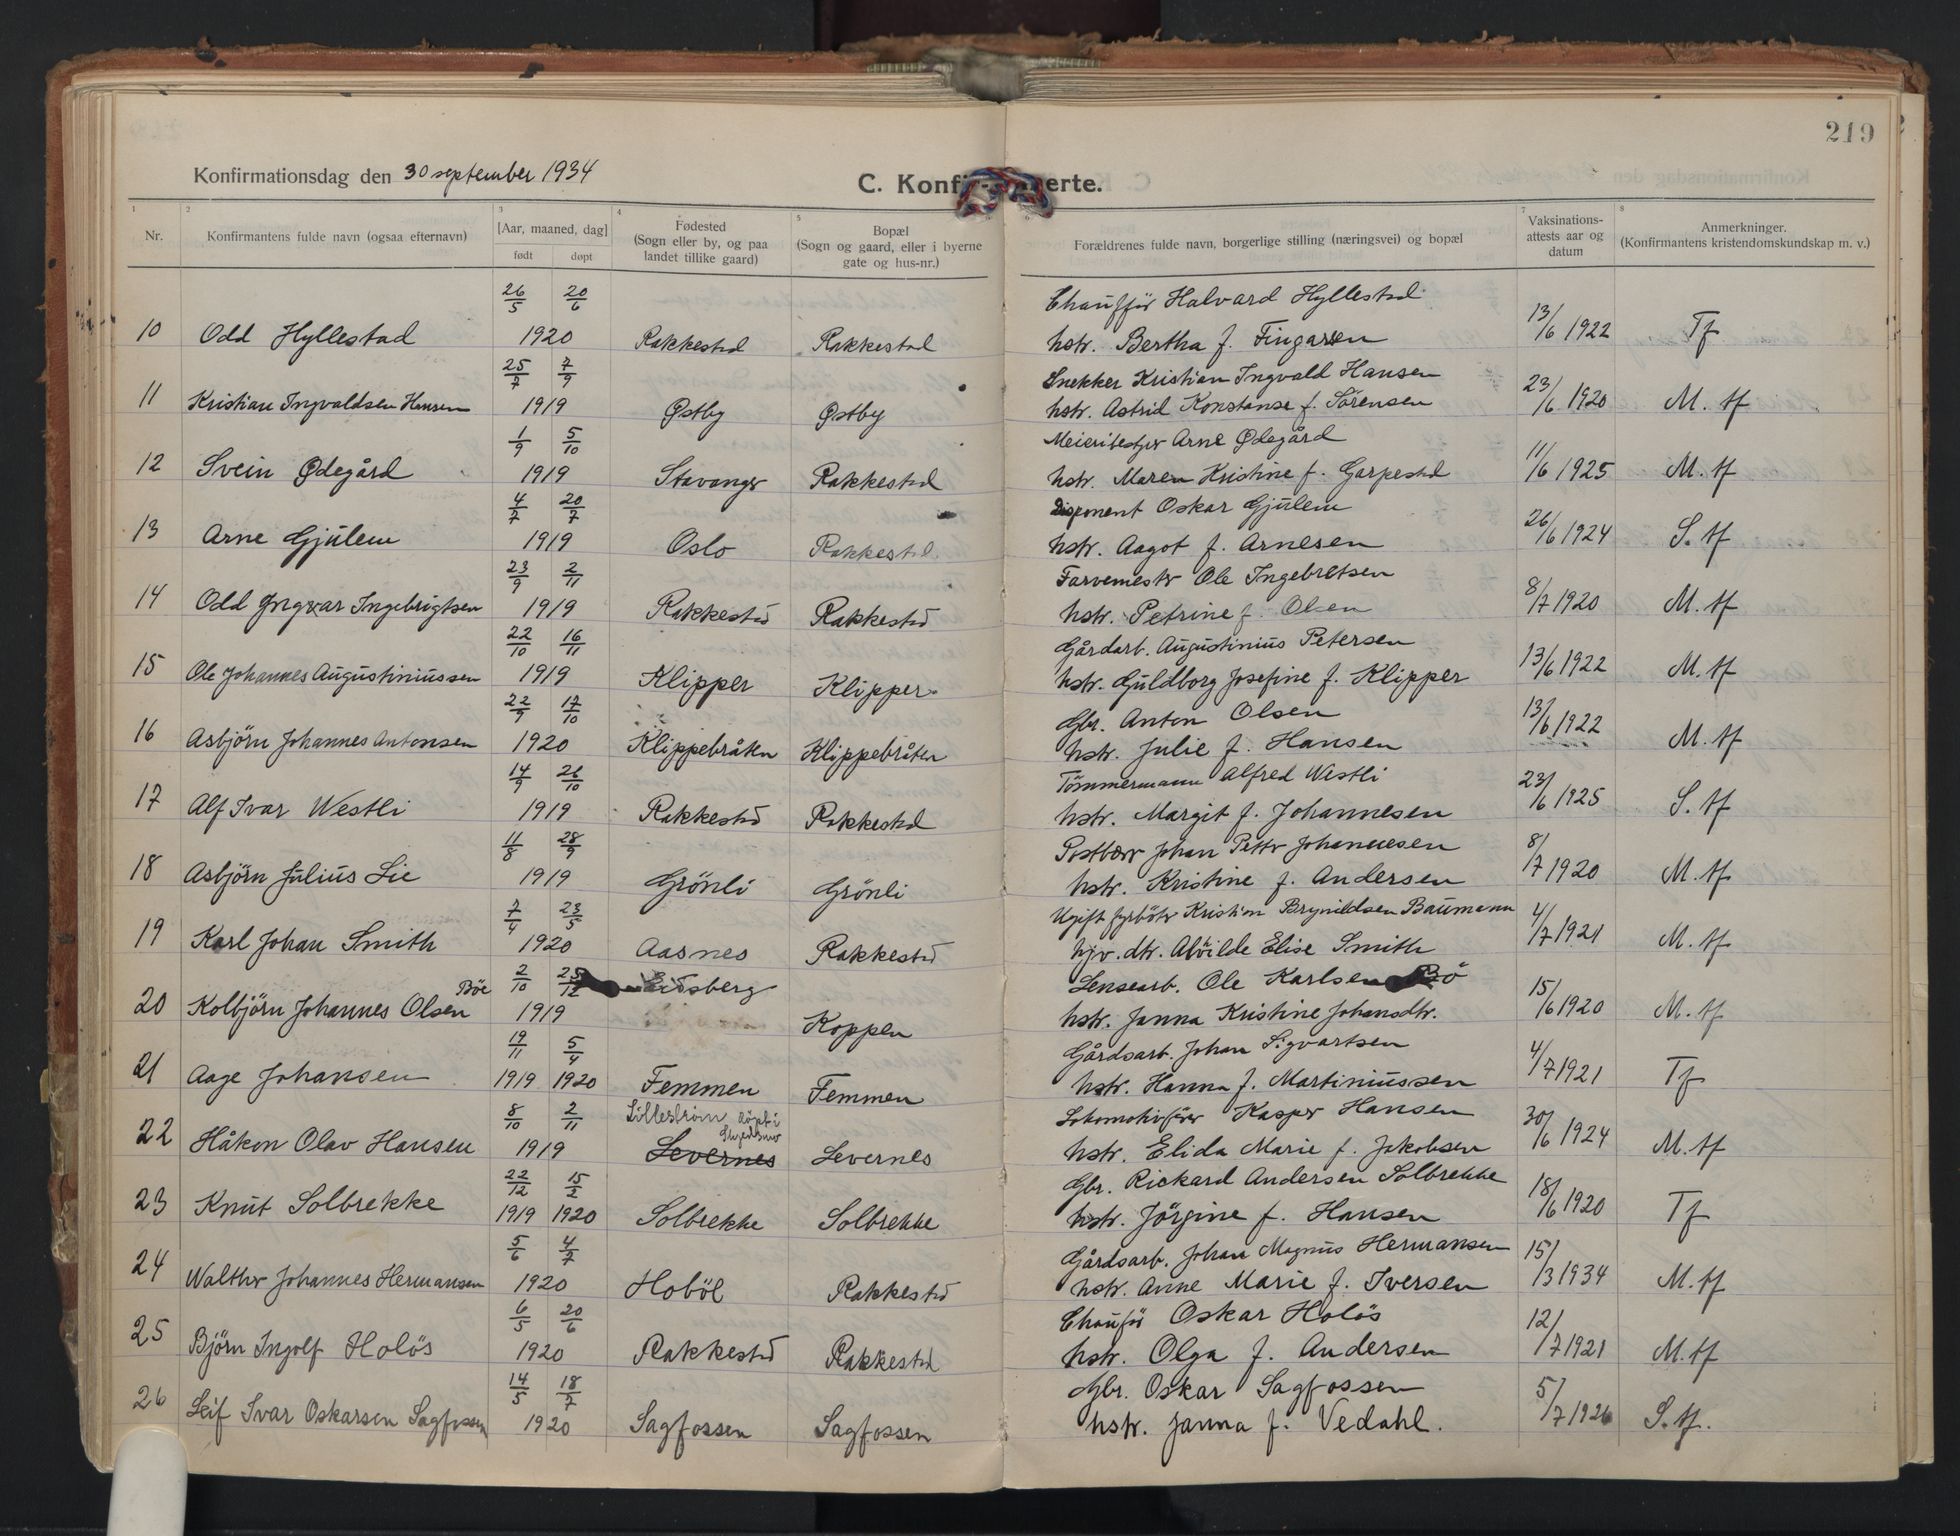 219
Konfirmationsdag den 30 september 1934
C. Konfir erte.
1 2 3 4 5 6 7 8
Nr. Konfirmantens fulde navn (ogsaa efternavn) [Aar, maaned, dag] født døpt Fødested (Sogn eller by, og paa landet tillike gaard) Bopæl (Sogn og gaard, eller i byerne gate og hus-nr.) Forældrenes fulde navn, borgerlige stilling (næringsvei) og bopæl Vaksinations-attests aar og datum Anmerkninger. (Konfirmantens kristendomskundskap m. v.)
26/5 20/6 Chauffør Halvard Hyllestad
10 Odd Hyllestad 1920 Rakkestad Rakkestad hstr. Bertha f. Fingarsen 13/6 1922 Tf
25/7 7/9 Snekker Kristian Ingvald Hansen
11 Kristian Ingvaldsen Hansen 1919 Østby Østby hstr. Astrid Konstanse f. Sørensen 23/6 1920 M. tf
1/9 5/10 Meieribestyr Arne Ødegård
12 Svein Ødegård 1919 Stavanger Rakkestad hstr. Maren Kristine f. Garpestad 11/6 1925 M. tf
4/7 20/7 Disponent Oskar Gjülem
13 Arne Gjülem 1919 Oslo Rakkestad hstr. Aagot f. Arnesen 26/6 1924 S. tf
23/9 2/11 Farvemestr Ole Ingebretsen
14 Odd Yngvar Ingebrigtsen 1919 Rakkestad Rakkestad hstr. Petrine f. Olsen 8/7 1920 M. tf
22/10 16/11 Gårdarb. Augustinius Petersen
15 Ole Johannes Augustiniussen 1919 Klipper Klipper hstr. Guldborg Josefine f. Klipper 13/6 1922 M. tf
22/9 17/10 Gbr. Anton Olsen
16 Asbjörn Johannes Antonsen 1920 Klippebråten Klippebråten hstr. Julie f. Hansen 13/6 1922 M. tf
14/9 26/10 Tömmermann Alfred Westli
17 Alf Ivar Westli 1919 Rakkestad Rakkestad hstr. Margit f. Johannesen 23/6 1925 S. tf
11/8 28/9 Postbærr Johan Petter Johannesen
18 Asbjörn Julius Lie 1919 Grönli Grönli hstr. Kristine f. Andersen 8/7 1920 M. tf
7/4 23/5 Ugift fyrbötr Kristian Brynildsen Baumann
19 Karl Johan Smith 1920 Aasnes Rakkestad hjv. dtr. Alvilde Elise Smith 4/7 1921 M. tf
Böe 2/10 25/12 Eidsberg Lensearb. Ole Karlsen Bö
20 Kolbjörn Johannes Olsen 1919 Koppen hstr. Janna Kristine Johansdtr. 15/6 1920 M. tf
19/11 5/4 Gårdsarb. Johan Sigvartsen
21 Aage Johansen 1919 1920 Femmen Femmen hstr. Hanna f. Martiniussen 4/7 1921 Tf
8/10 2/11 Lilleström döpt i Skedsmo Lokomotivförer Kasper Hansen
22 Håkon Olav Hansen 1919 Levernes Levernes hstr. Elida Marie f. Jakobsen 30/6 1924 M. tf
22/12 15/2 Gbr. Rickard Andersen Solbrekke
23 Knut Solbrekke 1919 1920 Solbrekke Solbrekke hstr. Jörgine f. Hansen 18/6 1920 Tf
5/6 4/7 Gårdsarb. Johan Magnus Hermansen
24 Walther Johannes Hermansen 1920 Hoböl Rakkestad hstr. Anne Marie f. Iversen 15/3 1934 M. tf
6/5 20/6 Chauför Oskar Holös
25 Björn Ingolf Holös 1920 Rakkestad Rakkestad hstr. Olga f. Andersen 12/7 1921 M. tf
14/5 18/7 Gbr. Oskar Sagfossen
26 Leif Ivar Oskarsen Sagfossen 1920 Sagfossen Sagfossen hstr. Janna f. Vedahl. 5/7 1926 S. tf.